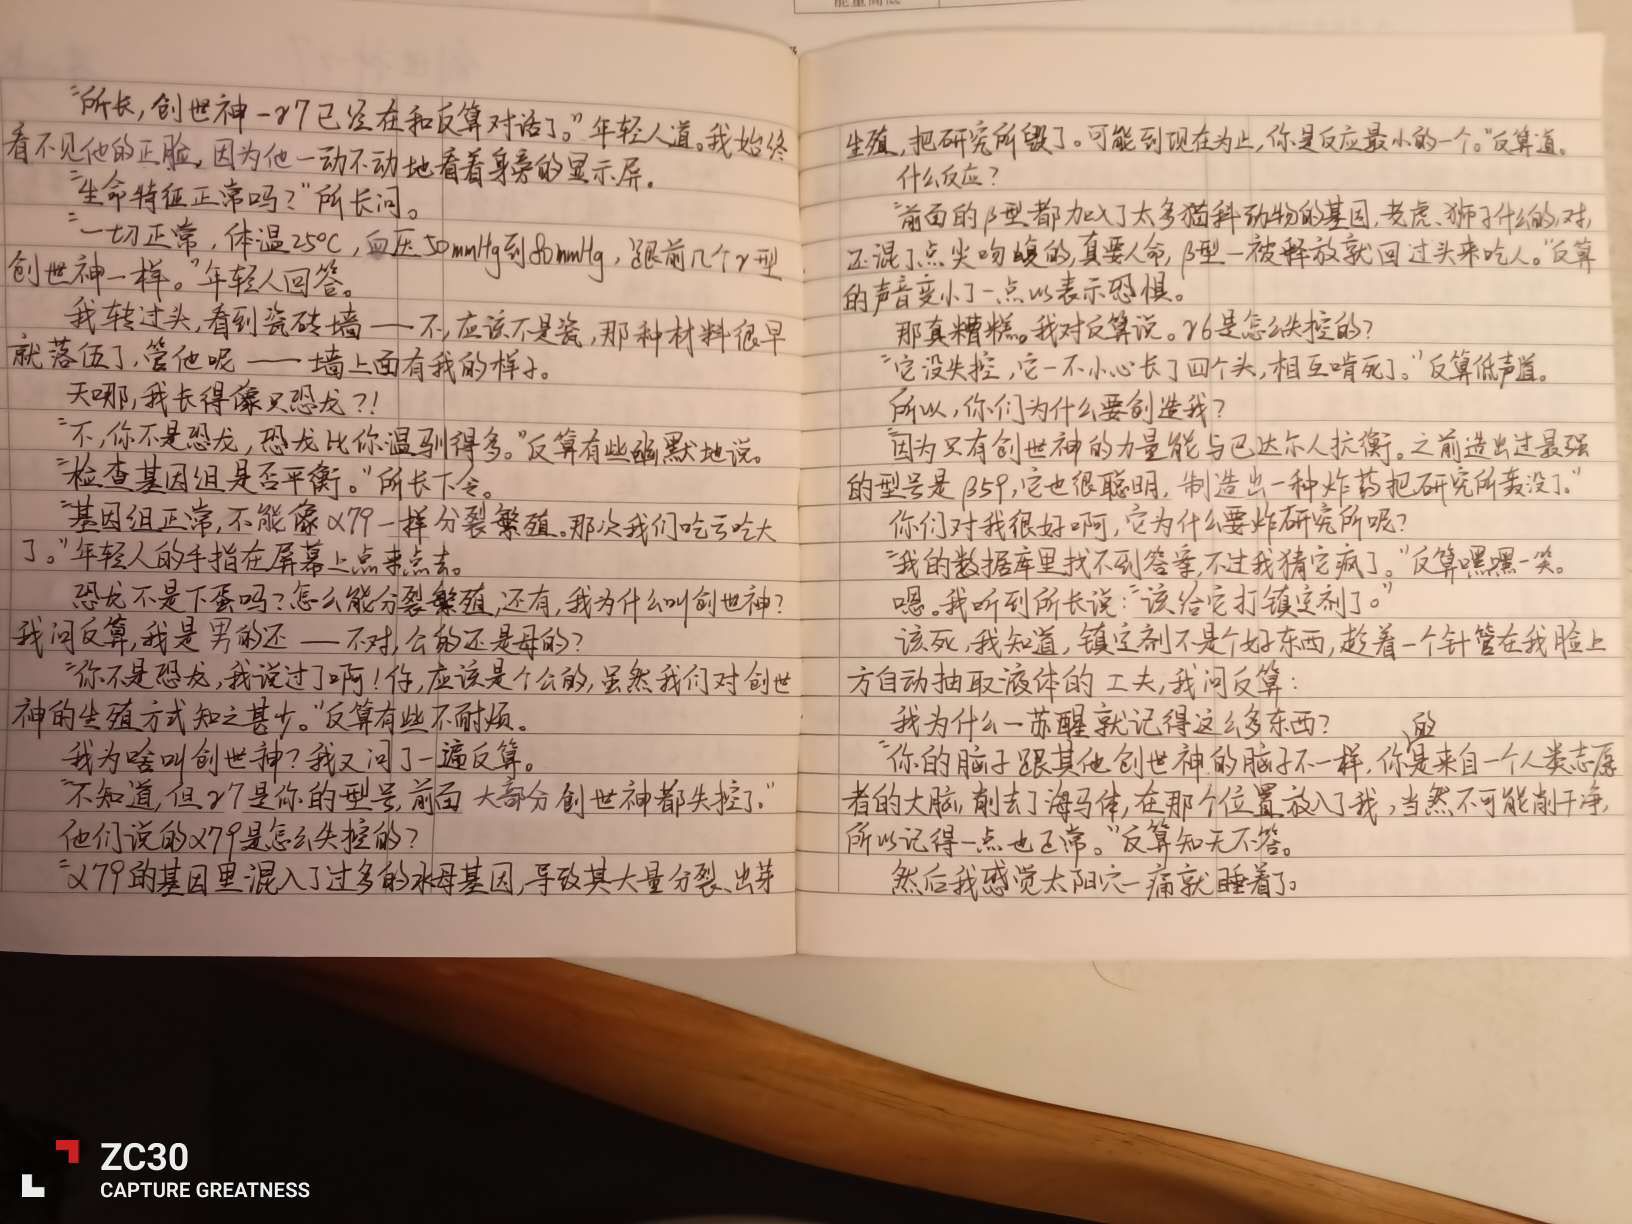 能量高低
"所长,创世神-γ7已经在和反算对话了。"年轻人道。我始终
看不见他的正脸,因为他一动不动地看着身旁的显示屏。
"生命特征正常吗?"所长问。
"一切正常,体温25℃,血压50mmHg到80mmHg,跟前几个γ型
创世神一样。"年轻人回答。
我转过头,看到瓷砖墙——不,应该不是瓷,那种材料很早
就落伍了,管他呢——墙上面有我的样子。
天哪,我长得像只恐龙?!
"不,你不是恐龙,恐龙比你温驯得多。"反算有些幽默地说。
"检查基因组是否平衡。"所长下令。
"基因组正常,不能像α79一样分裂繁殖。那次我们吃亏吃大
了。"年轻人的手指在屏幕上点来点去。
恐龙不是下蛋吗?怎么能分裂繁殖,还有,我为什么叫创世神?
我问反算,我是男的还——不对,公的还是母的?
"你不是恐龙,我说过了啊!你,应该是个公的,虽然我们对创世
神的生殖方式知之甚少。"反算有些不耐烦。
我为啥叫创世神?我又问了一遍反算。
"不知道,但γ7是你的型号,前面大部分创世神都失控了。"
他们说的α79是怎么失控的?
"α79的基因里混入了过多的水母基因,导致其大量分裂、出芽
生殖,把研究所毁了。可能到现在为止,你是反应最小的一个。"反算道。
什么反应?
"前面的β型都加入了太多猫科动物的基因,老虎、狮子什么的,对,
还混了点尖吻蝮的,真要人命,β型一被释放就回过头来吃人。"反算
的声音变小了一点以表示恐惧。
那真糟糕。我对反算说。γ6是怎么失控的?
"它没失控,它一不小心长了四个头,相互啃死了。"反算低声道。
所以,你们为什么要创造我?
"因为只有创世神的力量能与巴达尔人抗衡。之前造出过最强
的型号是β59,它也很聪明,制造出一种炸药把研究所轰没了。"
你们对我很好啊,它为什么要炸研究所呢?
"我的数据库里找不到答案,不过我猜它疯了。"反算嘿嘿一笑。
嗯。我听到所长说:"该给它打镇定剂了。"
该死,我知道,镇定剂不是个好东西,趁着一个针管在我脸上
方自动抽取液体的工夫,我问反算:
我为什么一苏醒就记得这么多东西?
"你的脑子跟其他创世神的脑子不一样,你的是来自一个人类志愿
者的大脑,削去了海马体,在那个位置放入了我,当然不可能削干净,
所以记得一点也正常。"反算知无不答。
然后我感觉太阳穴一痛就睡着了。
ZC30
CAPTURE GREATNESS